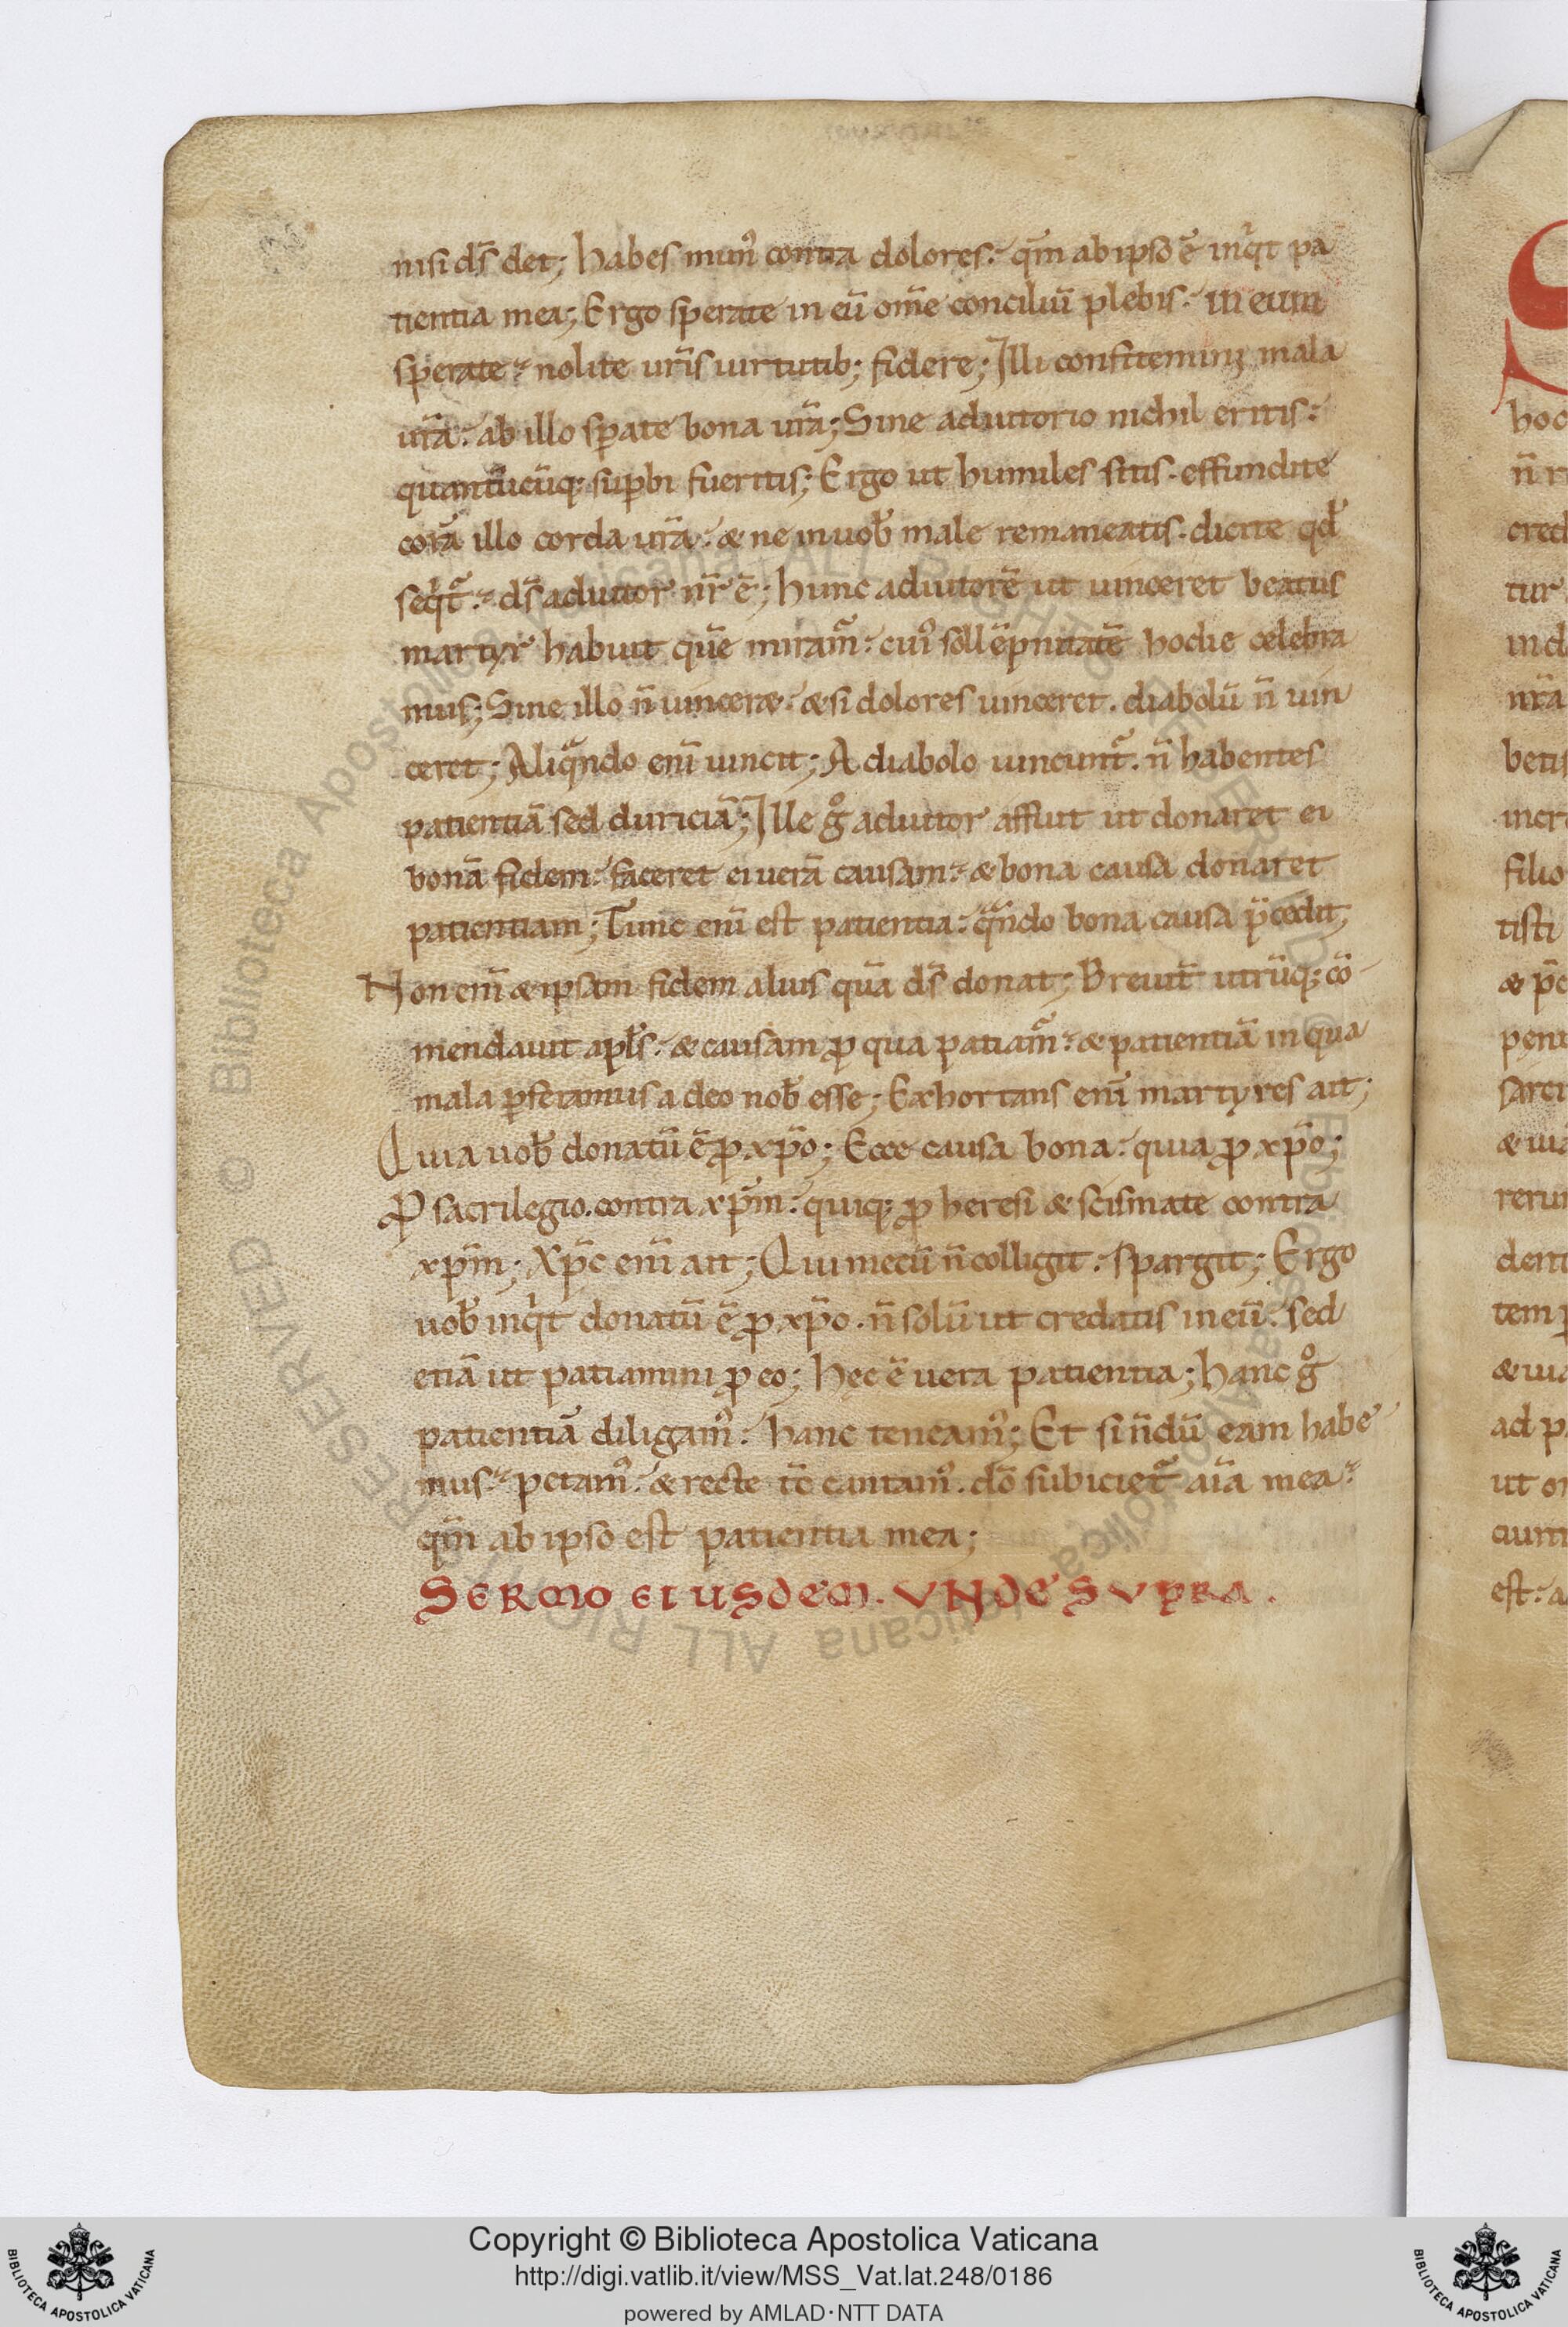 nisi ds̄ det; habes mun᷒ contra dolores. qm̄ ab ipso ē inqͥt pa
tientia mea; Ergo sperate in eū om̄e conciliū plebis. in eum
sperate. nolite ur̄is uirtutib; fidere; Illi confitemini mala
ur̄a. ab illo sꝑate bona ur̄a; Sine adiutorio nichil eritis.
quantūcūq; suꝑbi fueritis; Ergo ut humiles sitis. effundite
corā illo corda ur̄a. & ne in uob̄ male remaneatis. dicite qd̄
seqͥt᷑. ds̄ adiutor nr̄ ē; hunc adiutorē ut uinceret beatus
martyr habuit quē miram᷑. cui᷒ sollēpnitatē hodie celebra
mus; Sine illo n̄ uincer&. & si dolores uinceret. diabolū n̄ uin
ceret; Aliqͣndo enī uincit; A diabolo uincunt᷑. n̄ habentes
patientiā sed duriciā; Ille gͦ adiutor affuit ut donaret ei
bonā fidem. faceret ei uerā causam. & bona causa donaret
patientiam; Tunc enī est patientia. qͣndo bona causa p̄cedit;
Non enī & ipsam fidem alius quā ds̄ donat; Breuit̄ utrūq; cō
mendauit apl̄s. & causam ꝓ qua patiam᷑. & patientiā in qua
mala ꝑferamus a deo nob̄ esse; Exhortans enī martyres ait;
Quia uob̄ donatū ē ꝓ xp̄o; Ecce causa bona. quia ꝓ xp̄o;
Ꝓ sacrilegio. contra xp̄m. quiq; ꝓ heresi & scismate contra
xp̄m; Xp̄c enī ait; Qui mecū n̄ colligit. spargit; Ergo
uob̄ inqͥt donatū ē ꝓ xp̄o. n̄ solū ut credatis in eū. sed
etiā ut patiamini ꝓ eo; hęc ē uera patientia; hanc gͦ
patientiā diligam᷒. hanc teneam᷒; Et si n̄dū eam habe
mus. petam᷒. & recte tc̄ cantam᷒. dō subiciet᷑ aīa mea.
qm̄ ab ipso est patientia mea;
SERMO EIUSDEM. VNDE SVPRA.
hoc
n̄ r
cred
tur
ind
nr̄a
betis
incr
filio
tisti
& p
pent
sarci
& ui
rerur
dent
tem
& uia
ad p
ut o
cum
est. a
© Biblioteca Apostolica Vaticana ALL RIGHTS RESERVED © Biblioteca Apostolica Vaticana ALL RIGHTS RESERVED
Copyright © Biblioteca Apostolica Vaticana
http://digi.vatlib.it/view/MSS_Vat.lat.248/0186
powered by AMLAD·NTT DATA
BIBLIOTECA APOSTOLICA VATICANA
BIBLIOTECA APOSTOLICA VATICANA